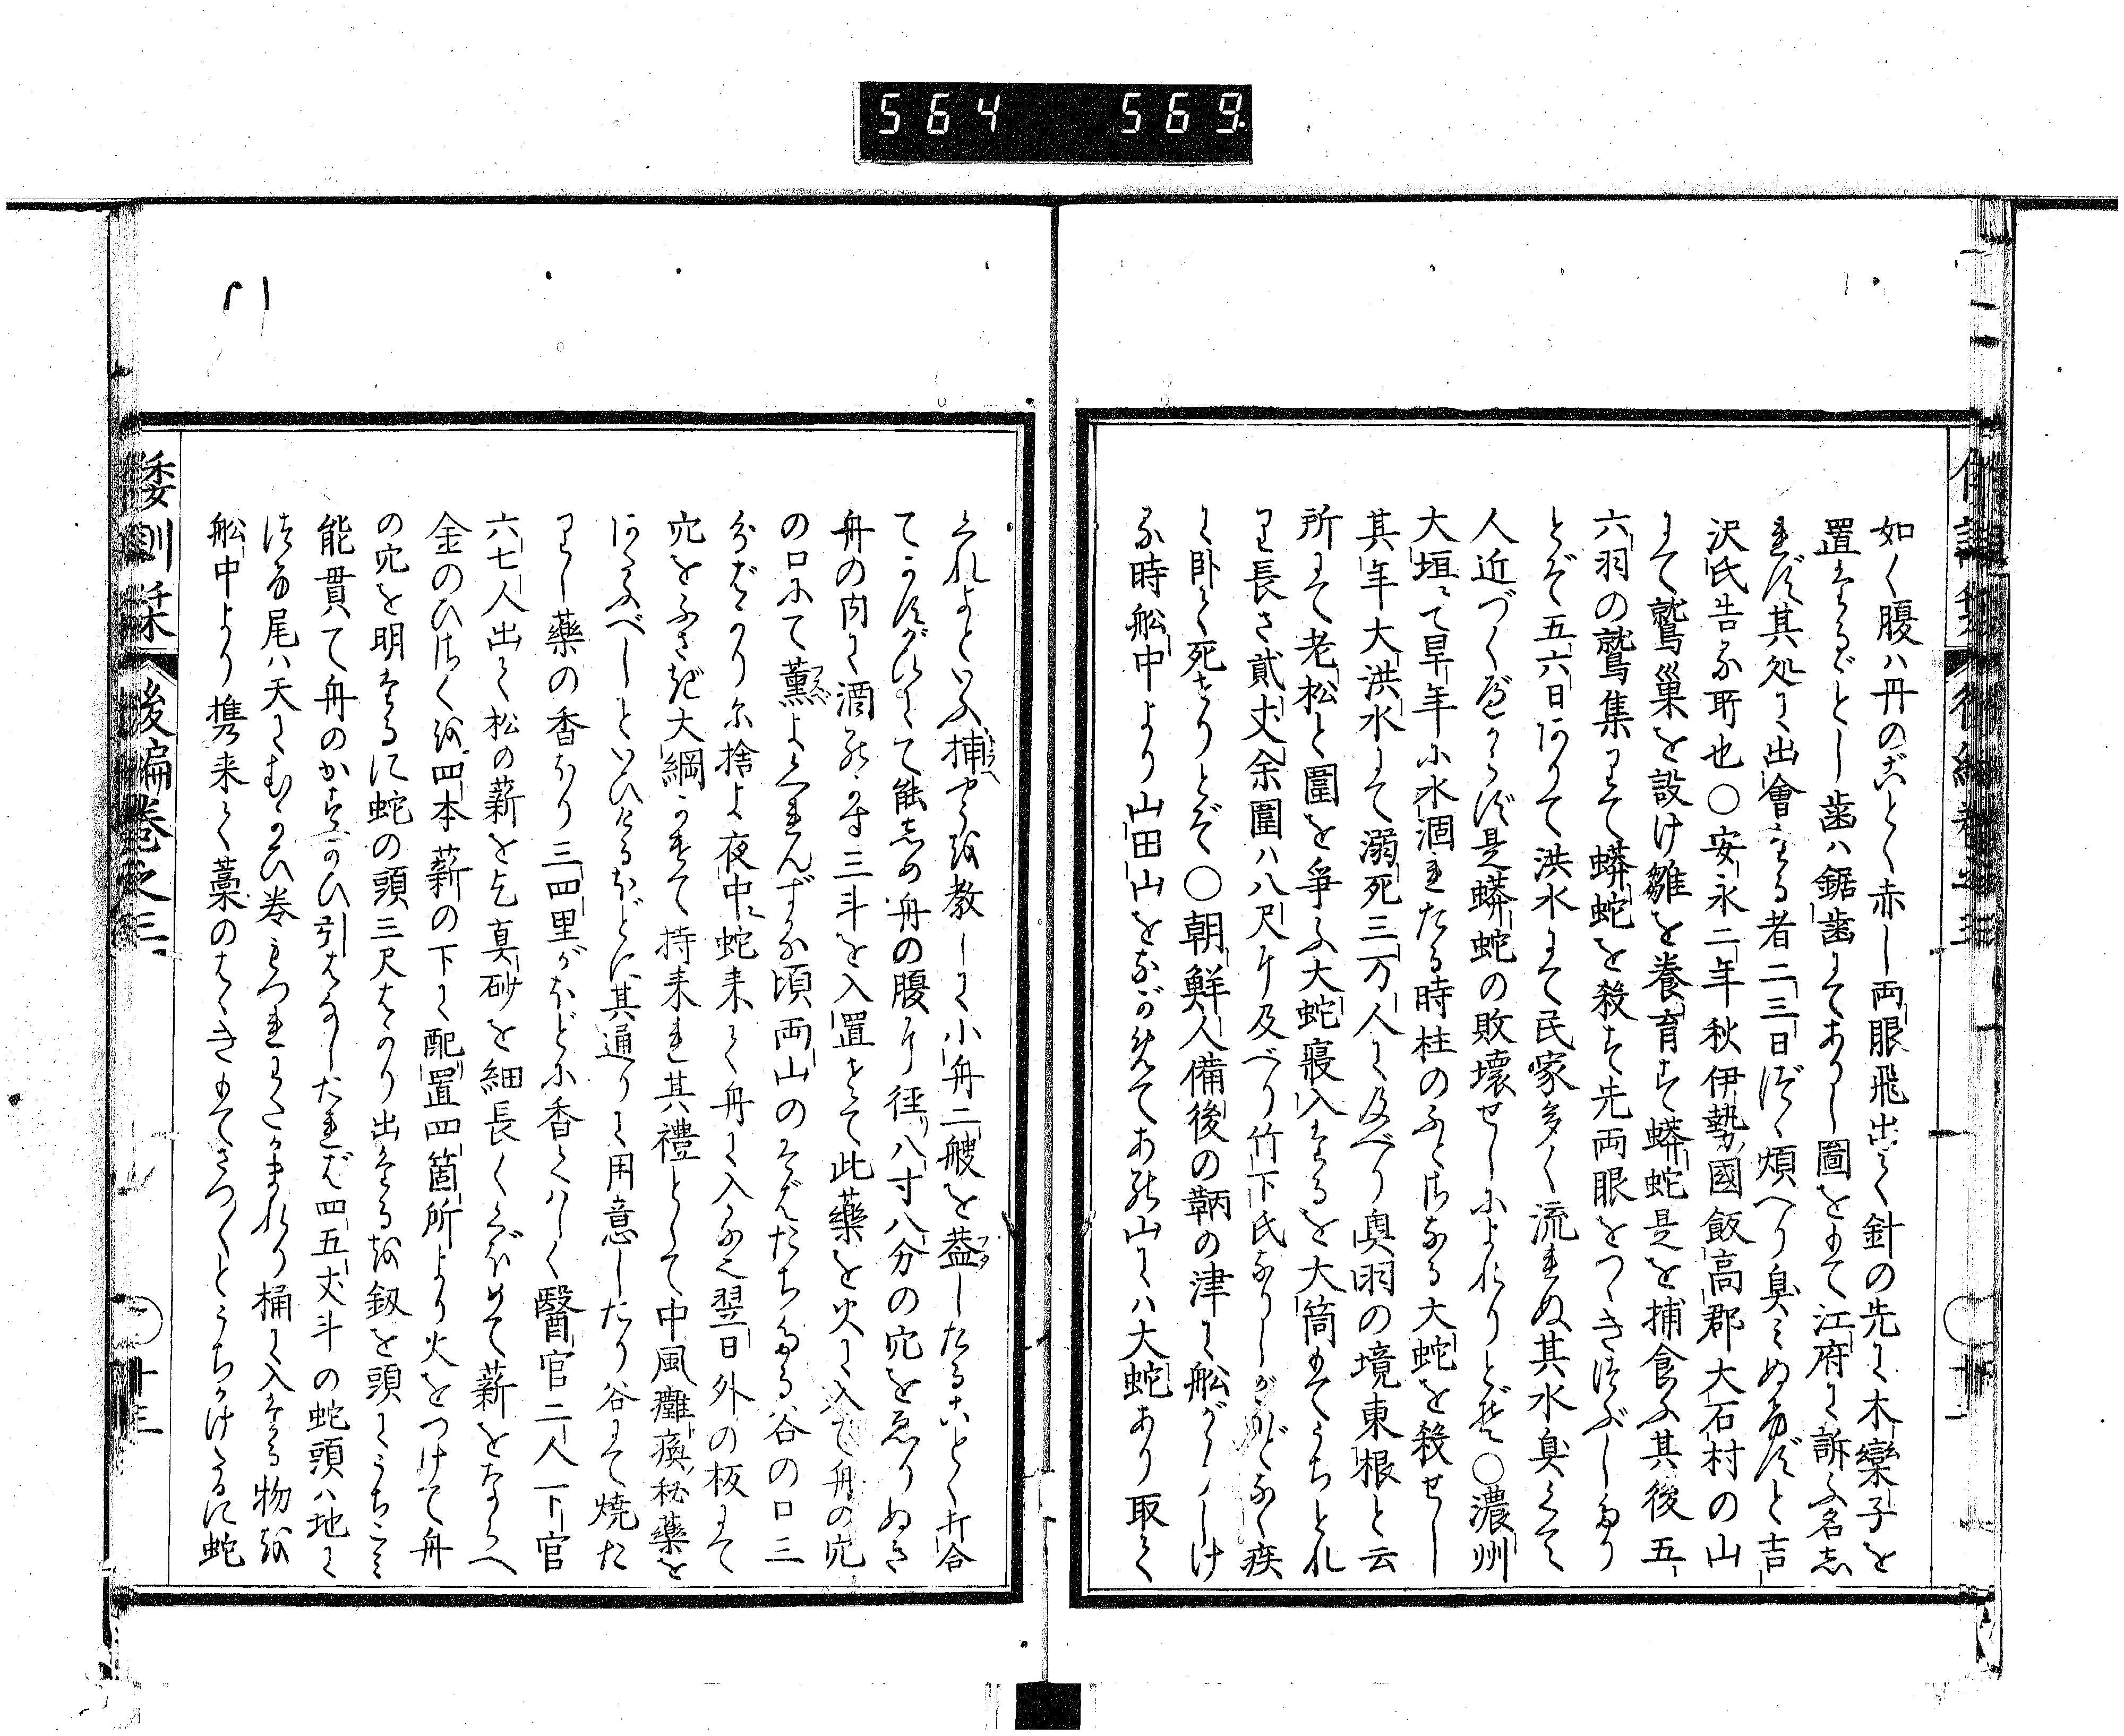 564 569
如く腹ハ丹のことく赤し両眼飛出て針の先に木欒子を
置たるごとし歯ハ鋸歯にてありし圖をもて江府に訴ふ名志
れず其処に出會たる者二三日づゝ煩へり臭みぬけずと吉
沢氏告る所也〇安永二年秋伊勢國飯高郡大石村の山
にて鷲巣を設け雛を養育す蟒蛇是を捕食ふ其後五
六羽の鷲集りて蟒蛇を殺す先両眼をつゝきつぶしけり
とぞ五六日ありて洪水にて民家多く流れぬ其水臭くて
人近づくべからず是蟒蛇の敗壊せしによれりとぞ〇濃州
大垣にて旱年に水涸れたる時柱のふとさなる大蛇を殺せし
其年大洪水にて溺死三万人に及べり奥羽の境東根と云
所にて老松と圍を爭ふ大蛇寢入たるを大筒もてうちとれ
り長さ貳丈余圍ハ八尺に及べり竹下氏なりしがほどなく疾
に臥て死せりとぞ〇朝鮮人備後の鞆の津に船がゝりしけ
る時船中より山田山をながめてあの山にハ大蛇あり取て
くれよといふ捕やうを教しに小舟二艘を蓋したることく打合
てかすがひにて能しめ舟の腹に径八寸八分の穴をゑりぬき
舟の内に酒糟三斗を入置さて此藥を火に入て舟の穴
の口にて薫よくれんずる頃両山のそばだちたる谷の口三
分ばかりに捨よ夜中に蛇来て舟に入なん翌日外の板にて
穴をふさぎ大綱かけて持来れ其禮として中風癱瘓秘藥を
あたふべしといひけるほどに其通りに用意したり谷にて焼た
りし藥の香ほり三四里がほどに香ハしく醫官二人下官
六七人出て松の薪を乞真砂を細長くくぼめて薪をならへ
金のひばしを四本薪の下に配置四箇所より火をつけて舟
の穴を明たるに蛇の頭三尺ばかり出たるを釼を頭にうちこミ
能貫て舟のかすがひ引はなしたれば四五丈斗の蛇頭ハ地に
つけ尾ハ天にむかひ巻もつれわだかまれり桶に入たる物を
船中より携来て藁のはゝきもてさつ〱とうちかけゝるに蛇
倭訓栞 後編巻之三 〇十三